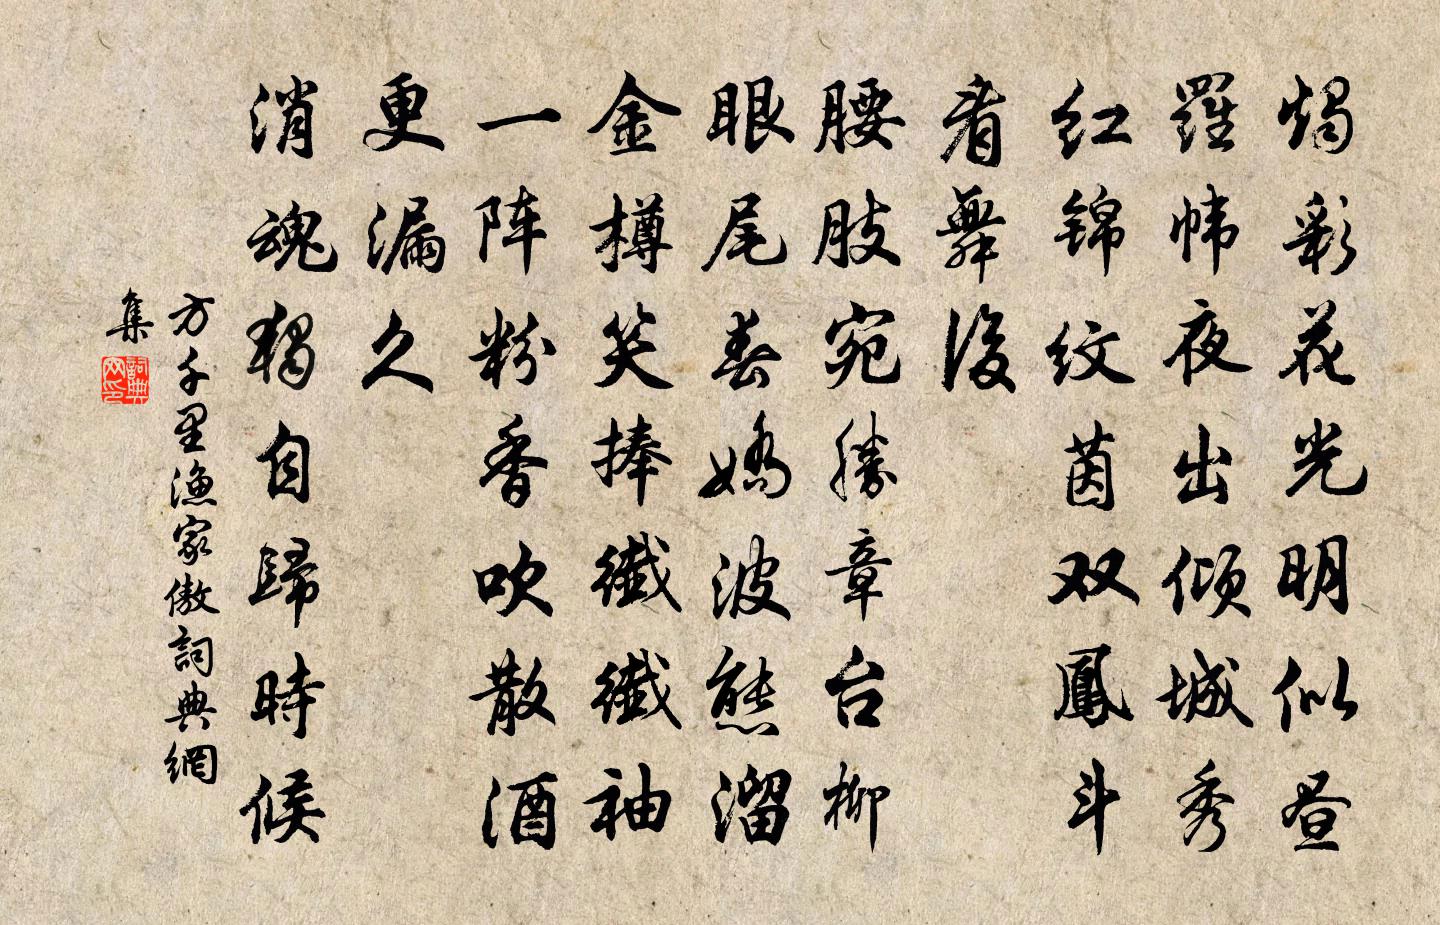 烛彩花光明似昼
羅帏夜出倾城秀
红锦纹茵双鳳斗
看舞後
腰肢宛勝章台柳
眼尾春嬌波態溜
金樽笑捧纖纖袖
一阵粉香吹散酒
更漏久
消魂独自歸時候
方千里渔家傲詞典網
集
詞典
网印